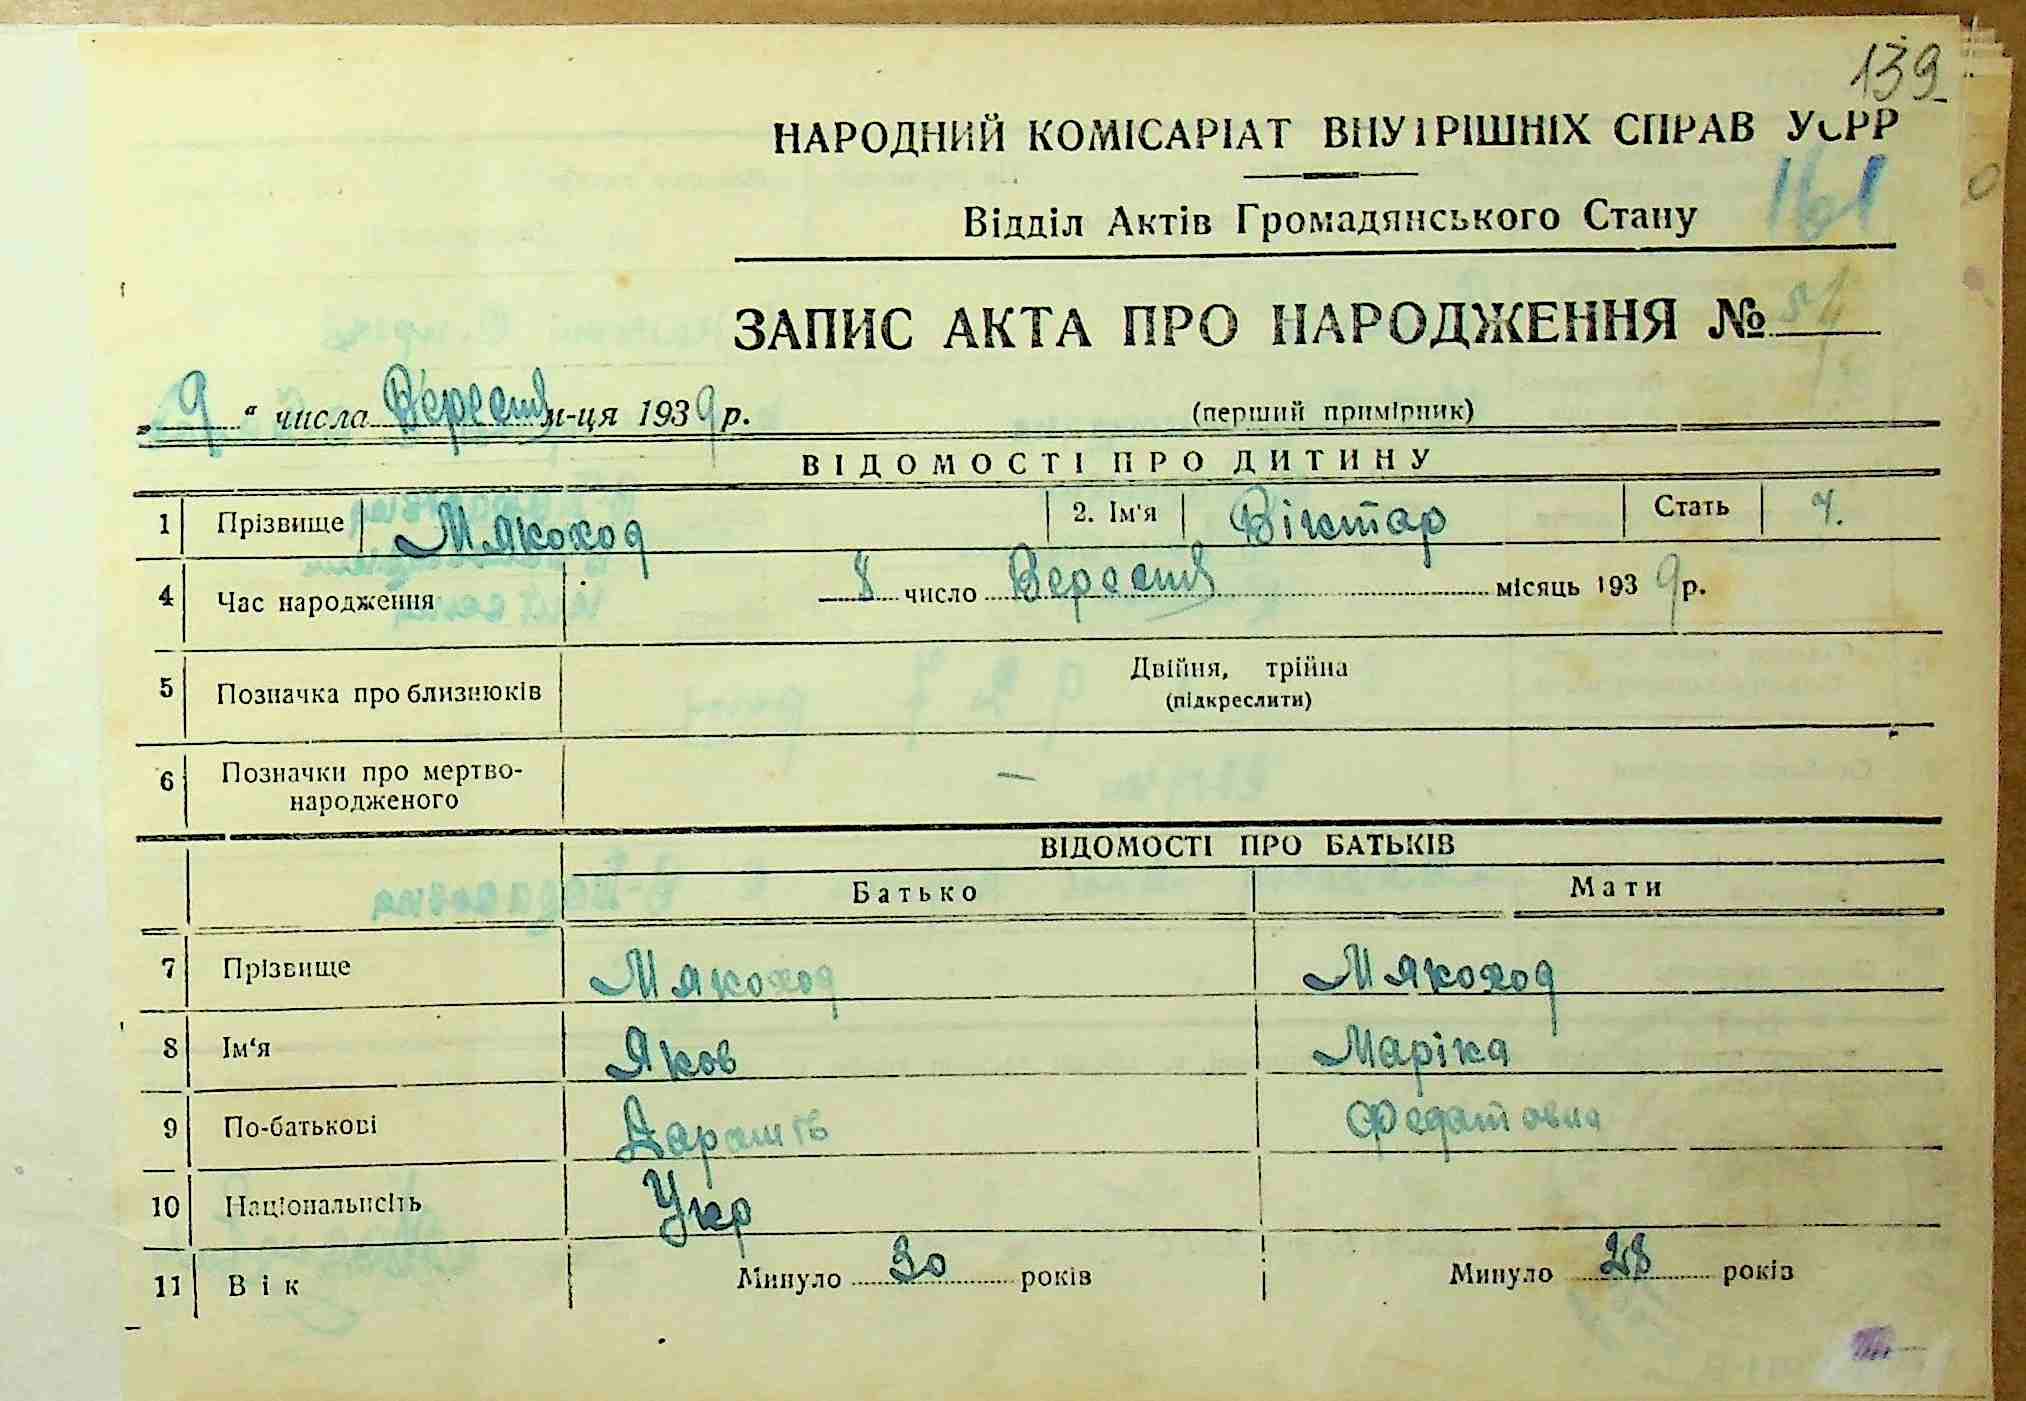 139
НАРОДНИЙ КОМІСАРІАТ ВНУТРІШНІХ СПРАВ УСРР
161
Відділ Актів Громадянського Стану
ЗАПИС АКТА ПРО НАРОДЖЕННЯ № 51
„ 9 “ числа Вересня м-ця 1939 р. (перший примірник)
ВІДОМОСТІ ПРО ДИТИНУ
1 Прізвище Мякоход 2. Ім'я Віктар Стать ч.
4 Час народження 8 число Вересня місяць 1939 р.
5 Позначка про близнюків Двійня, трійна
(підкреслити)
6 Позначки про мертво-
народженого —
ВІДОМОСТІ ПРО БАТЬКІВ
Батько Мати
7 Прізвище Мякоход Мякоход
8 Ім‘я Яков Маріка
9 По-батькові Федатовна
10 Національність Укр
11 Вік Минуло 30 років Минуло 28 років